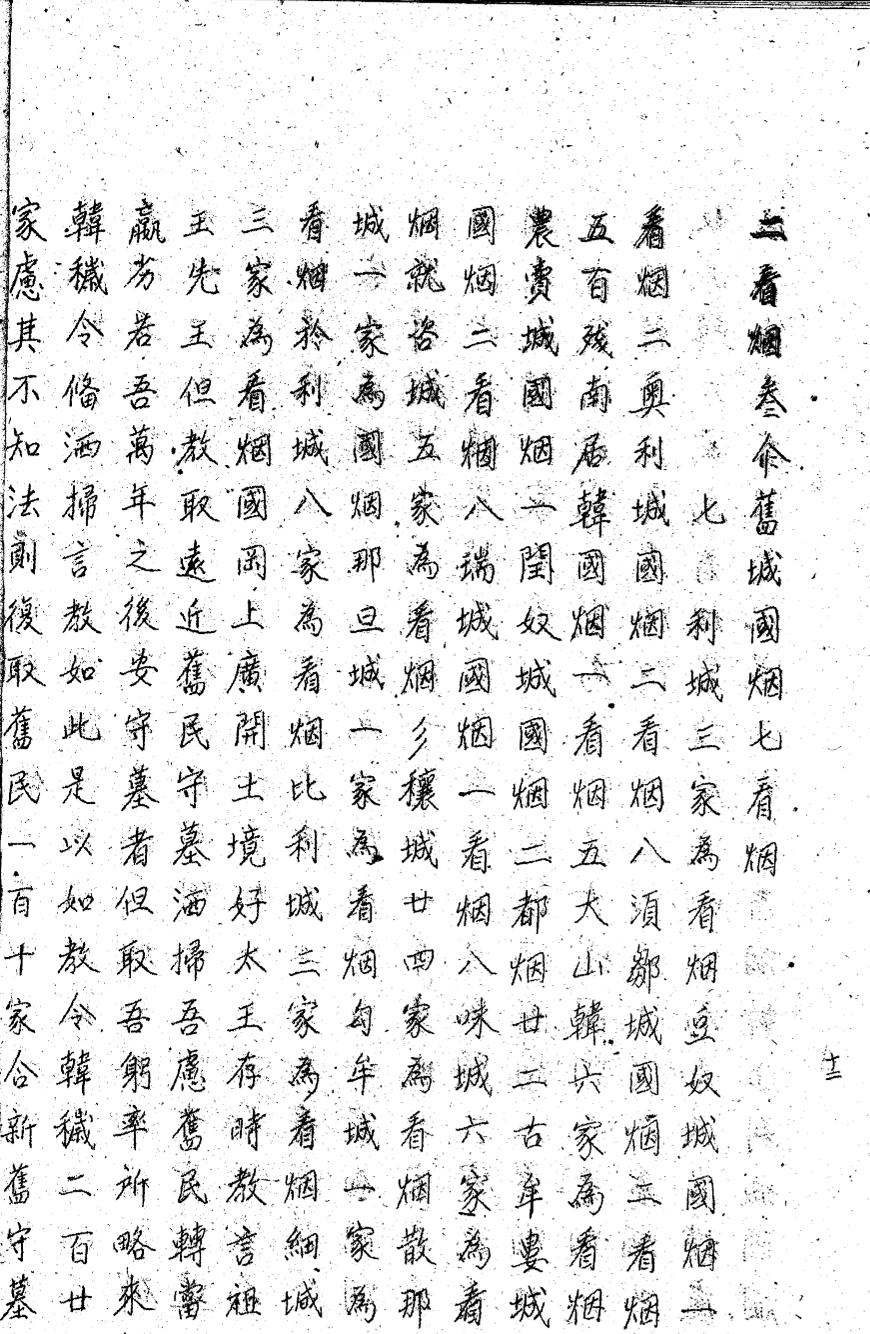 二看烟叄尒舊城國烟七看烟
七利城三家為看烟豆奴城國烟一
看烟二奧利城國烟二看烟八須鄒城國烟二看烟
五百残南居韓國烟一看烟五大山韓六家為看烟
農賣城國烟一閏奴城國烟二都烟廿二古牟婁城
國烟二看烟八瑞城國烟一看烟八味城六家為看
烟就咨城五家為看烟彡穰城廿四家為看烟散那
城一家為國烟那旦城一家為看烟勾牟城一家為
看烟於利城八家為看烟比利城三家為看烟細城
三家為看烟國罡上廣開土境好太王存時教言祖
王先王但教取遠近舊民守墓洒掃吾慮舊民轉當
羸劣若吾萬年之後安守墓者但取吾躬率所略來
韓穢令俻洒掃言教如此是以如教令韓穢二百廿
家慮其不知法則復取舊民一百十家合新舊守墓
十二